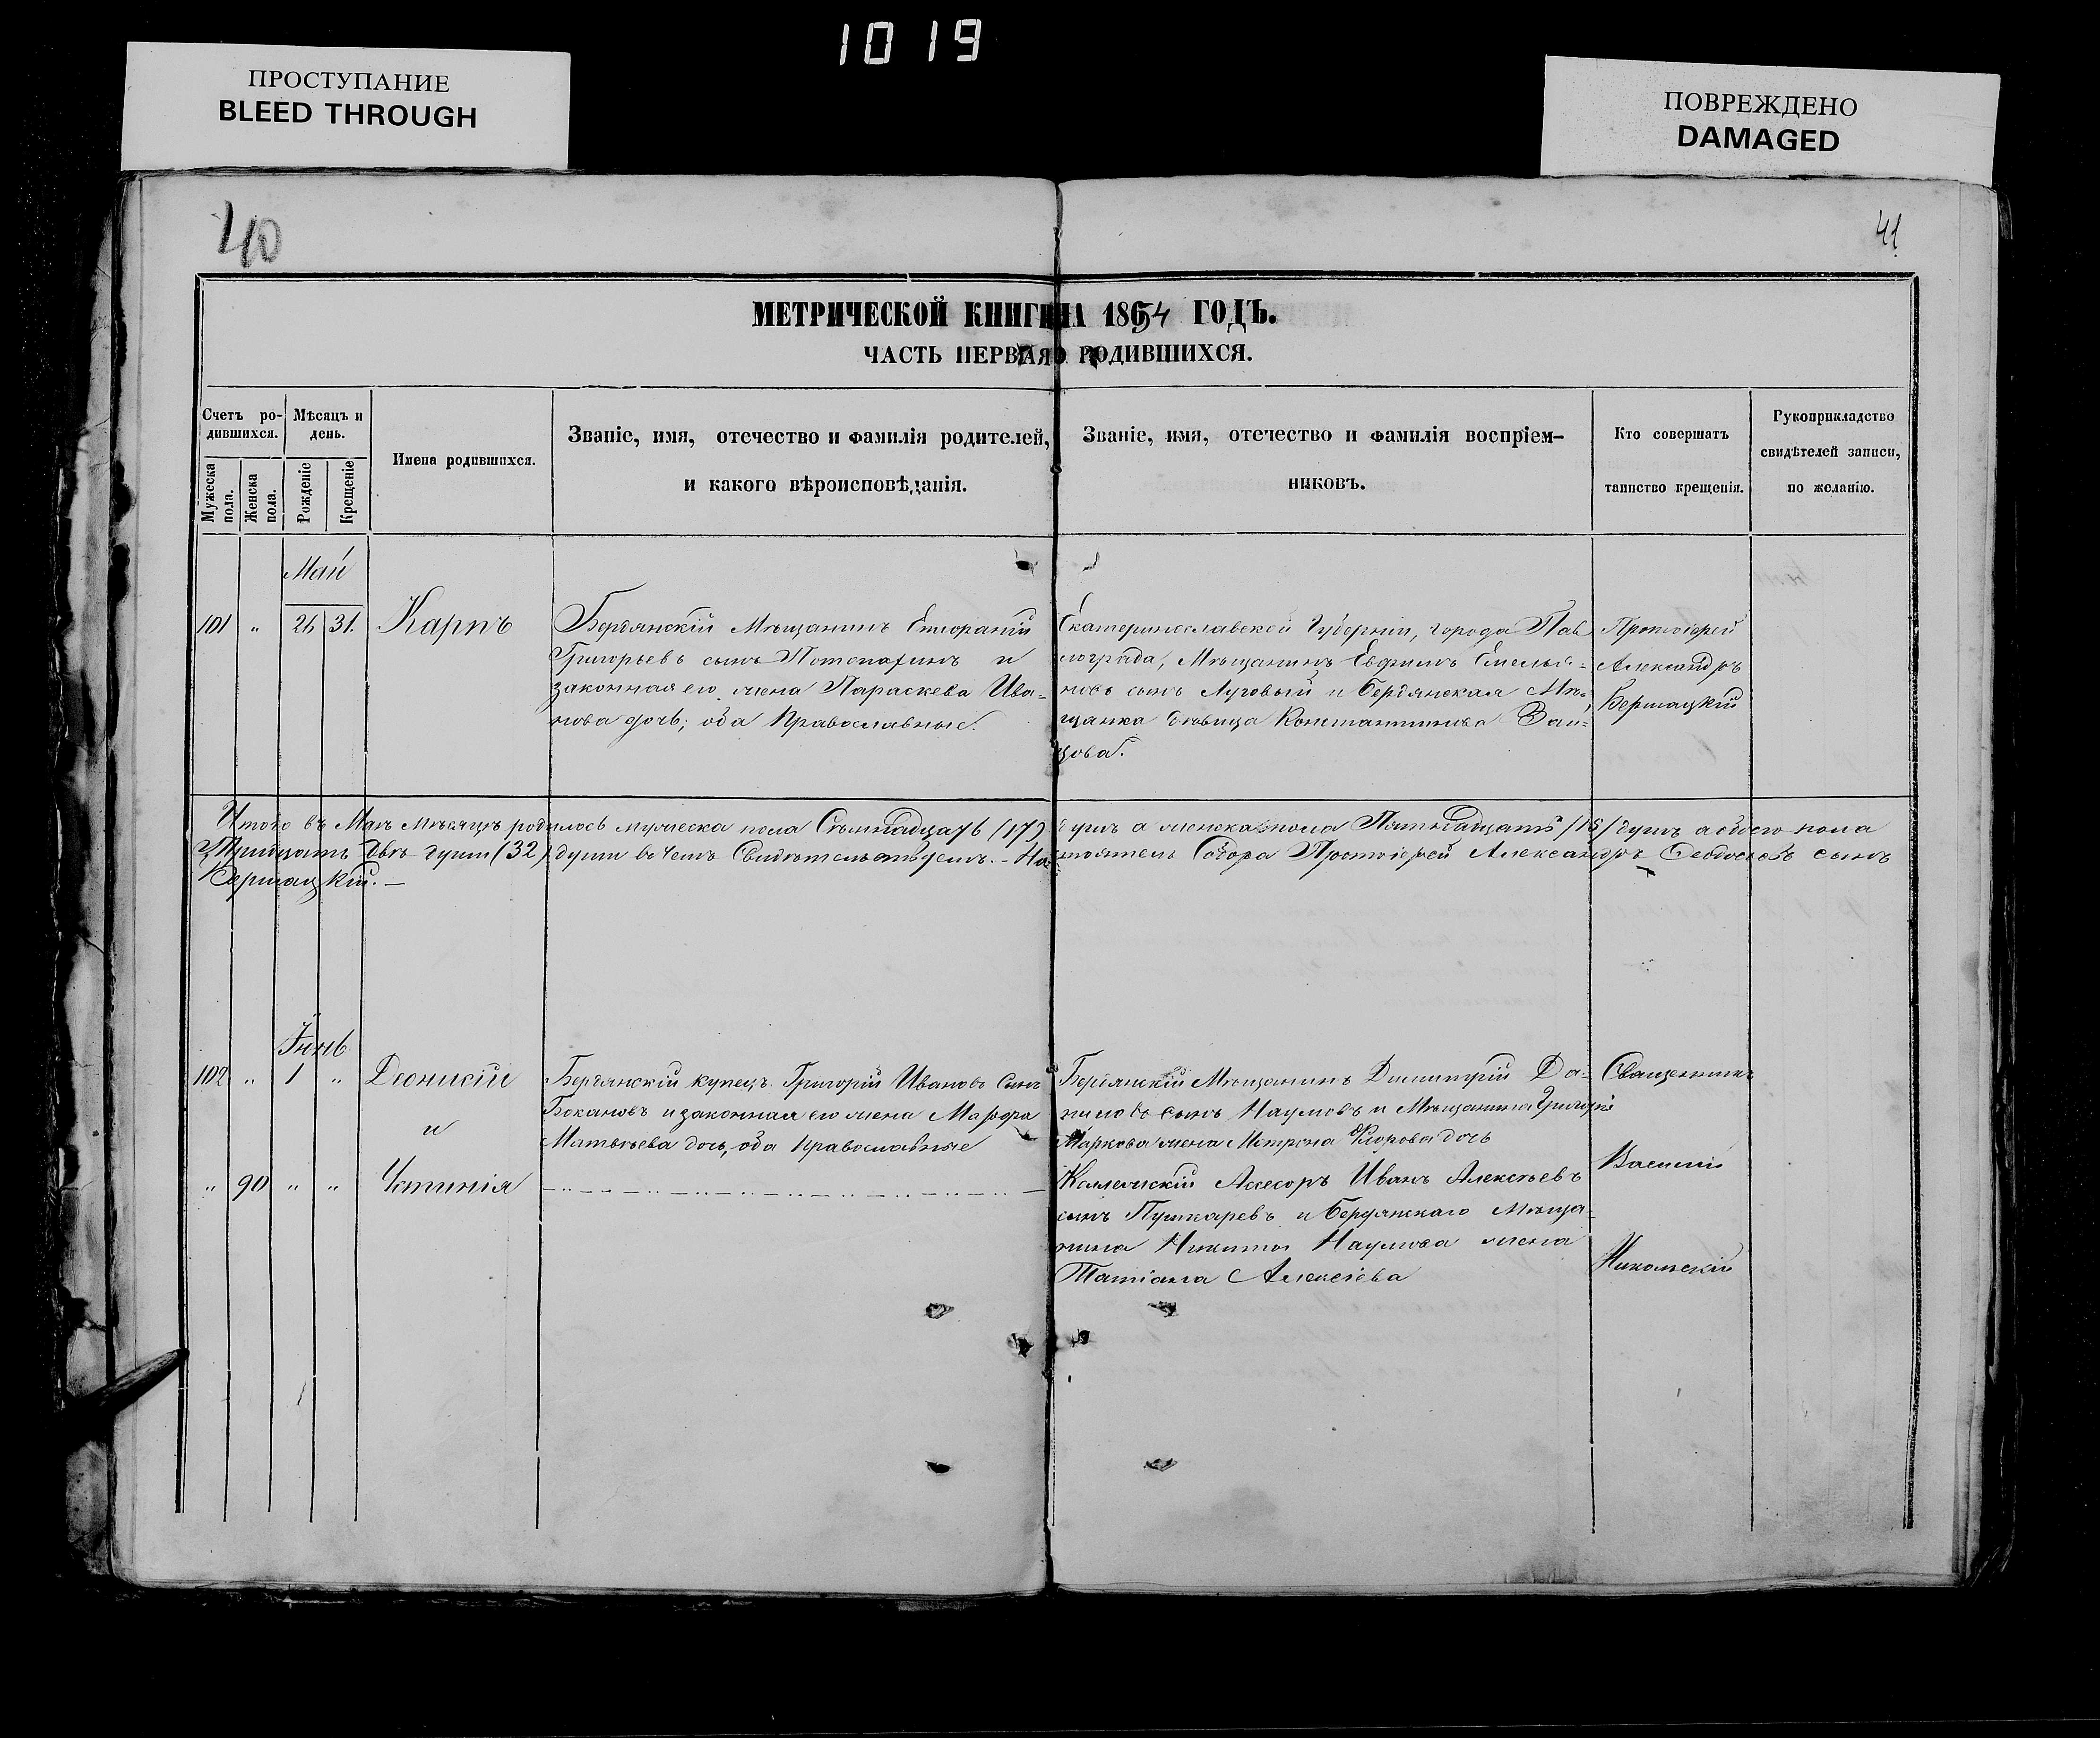 1019
ПРОСТУПАНИЕ
BLEED THROUGH
ПОВРЕЖДЕНО
DAMAGED
40
41
МЕТРИЧЕСКОЙ КНИГИ НА 1854 ГОДЪ.
ЧАСТЬ ПЕРВАЯ О РОДИВШИХСЯ.
Счетъ ро-
дившихся.
Мужеска пола.
Женска пола.
Мѣсяцъ и
день.
Рожденіе
Крещеніе
Имена родившихся.
Званіе, имя, отечество и фамилія родителей,
и какого вѣроисповѣданія.
Званіе, имя, отечество и фамилія воспріем-
никовъ.
Кто совершатъ
таинство крещенія.
Рукоприкладство
свидѣтелей записи,
по желанію.
Май
101 " 26 31. Карпъ
Бердянскій Мѣщанинъ
Григорьевъ сынъ и
законная его жена Параскева Ива-
нова дочь; оба Православные.
Екатеринославской Губерніи, города Пав
лограда, Мѣщанинъ Евфимъ Емелья-
новъ сынъ Луговый и Бердянская Мѣ-
щанка дѣвица Константинова Заи-
цова.
Протоіерей
Александръ
Бершацкій
Итого въ Маѣ Мѣсяцѣ родилось мужеска пола Семнадцать (17) душъ а женска пола Пятнадцать (15) душъ а обоего пола
Тридцать двѣ души (32) души въ чемъ Свидѣтельствуемъ. - Настоятель Собора Протоіерей Александръ Ѳеодосіевъ сынъ
Бершацкій. —
Іюнь
102 " 1 " Діонисій
и
" 90 " " Устинія
Бердянскій купецъ Григорій Ивановъ сынъ
Бокановъ и законная его жена Марфа
Матвѣева дочь, оба Православные
Бердянскій Мѣщанинъ Димитрій Да-
ниловъ сынъ Наумовъ и Мѣщанина Григорія
Маркова жена Матрона дочь
Коллежскій Асесоръ Иванъ Алексѣевъ
сынъ Пушкаревъ и Бердянскаго Мѣща-
нина Никиты Наумова жена
Татіана Алексіева
Священникъ
Василій
Никольскій